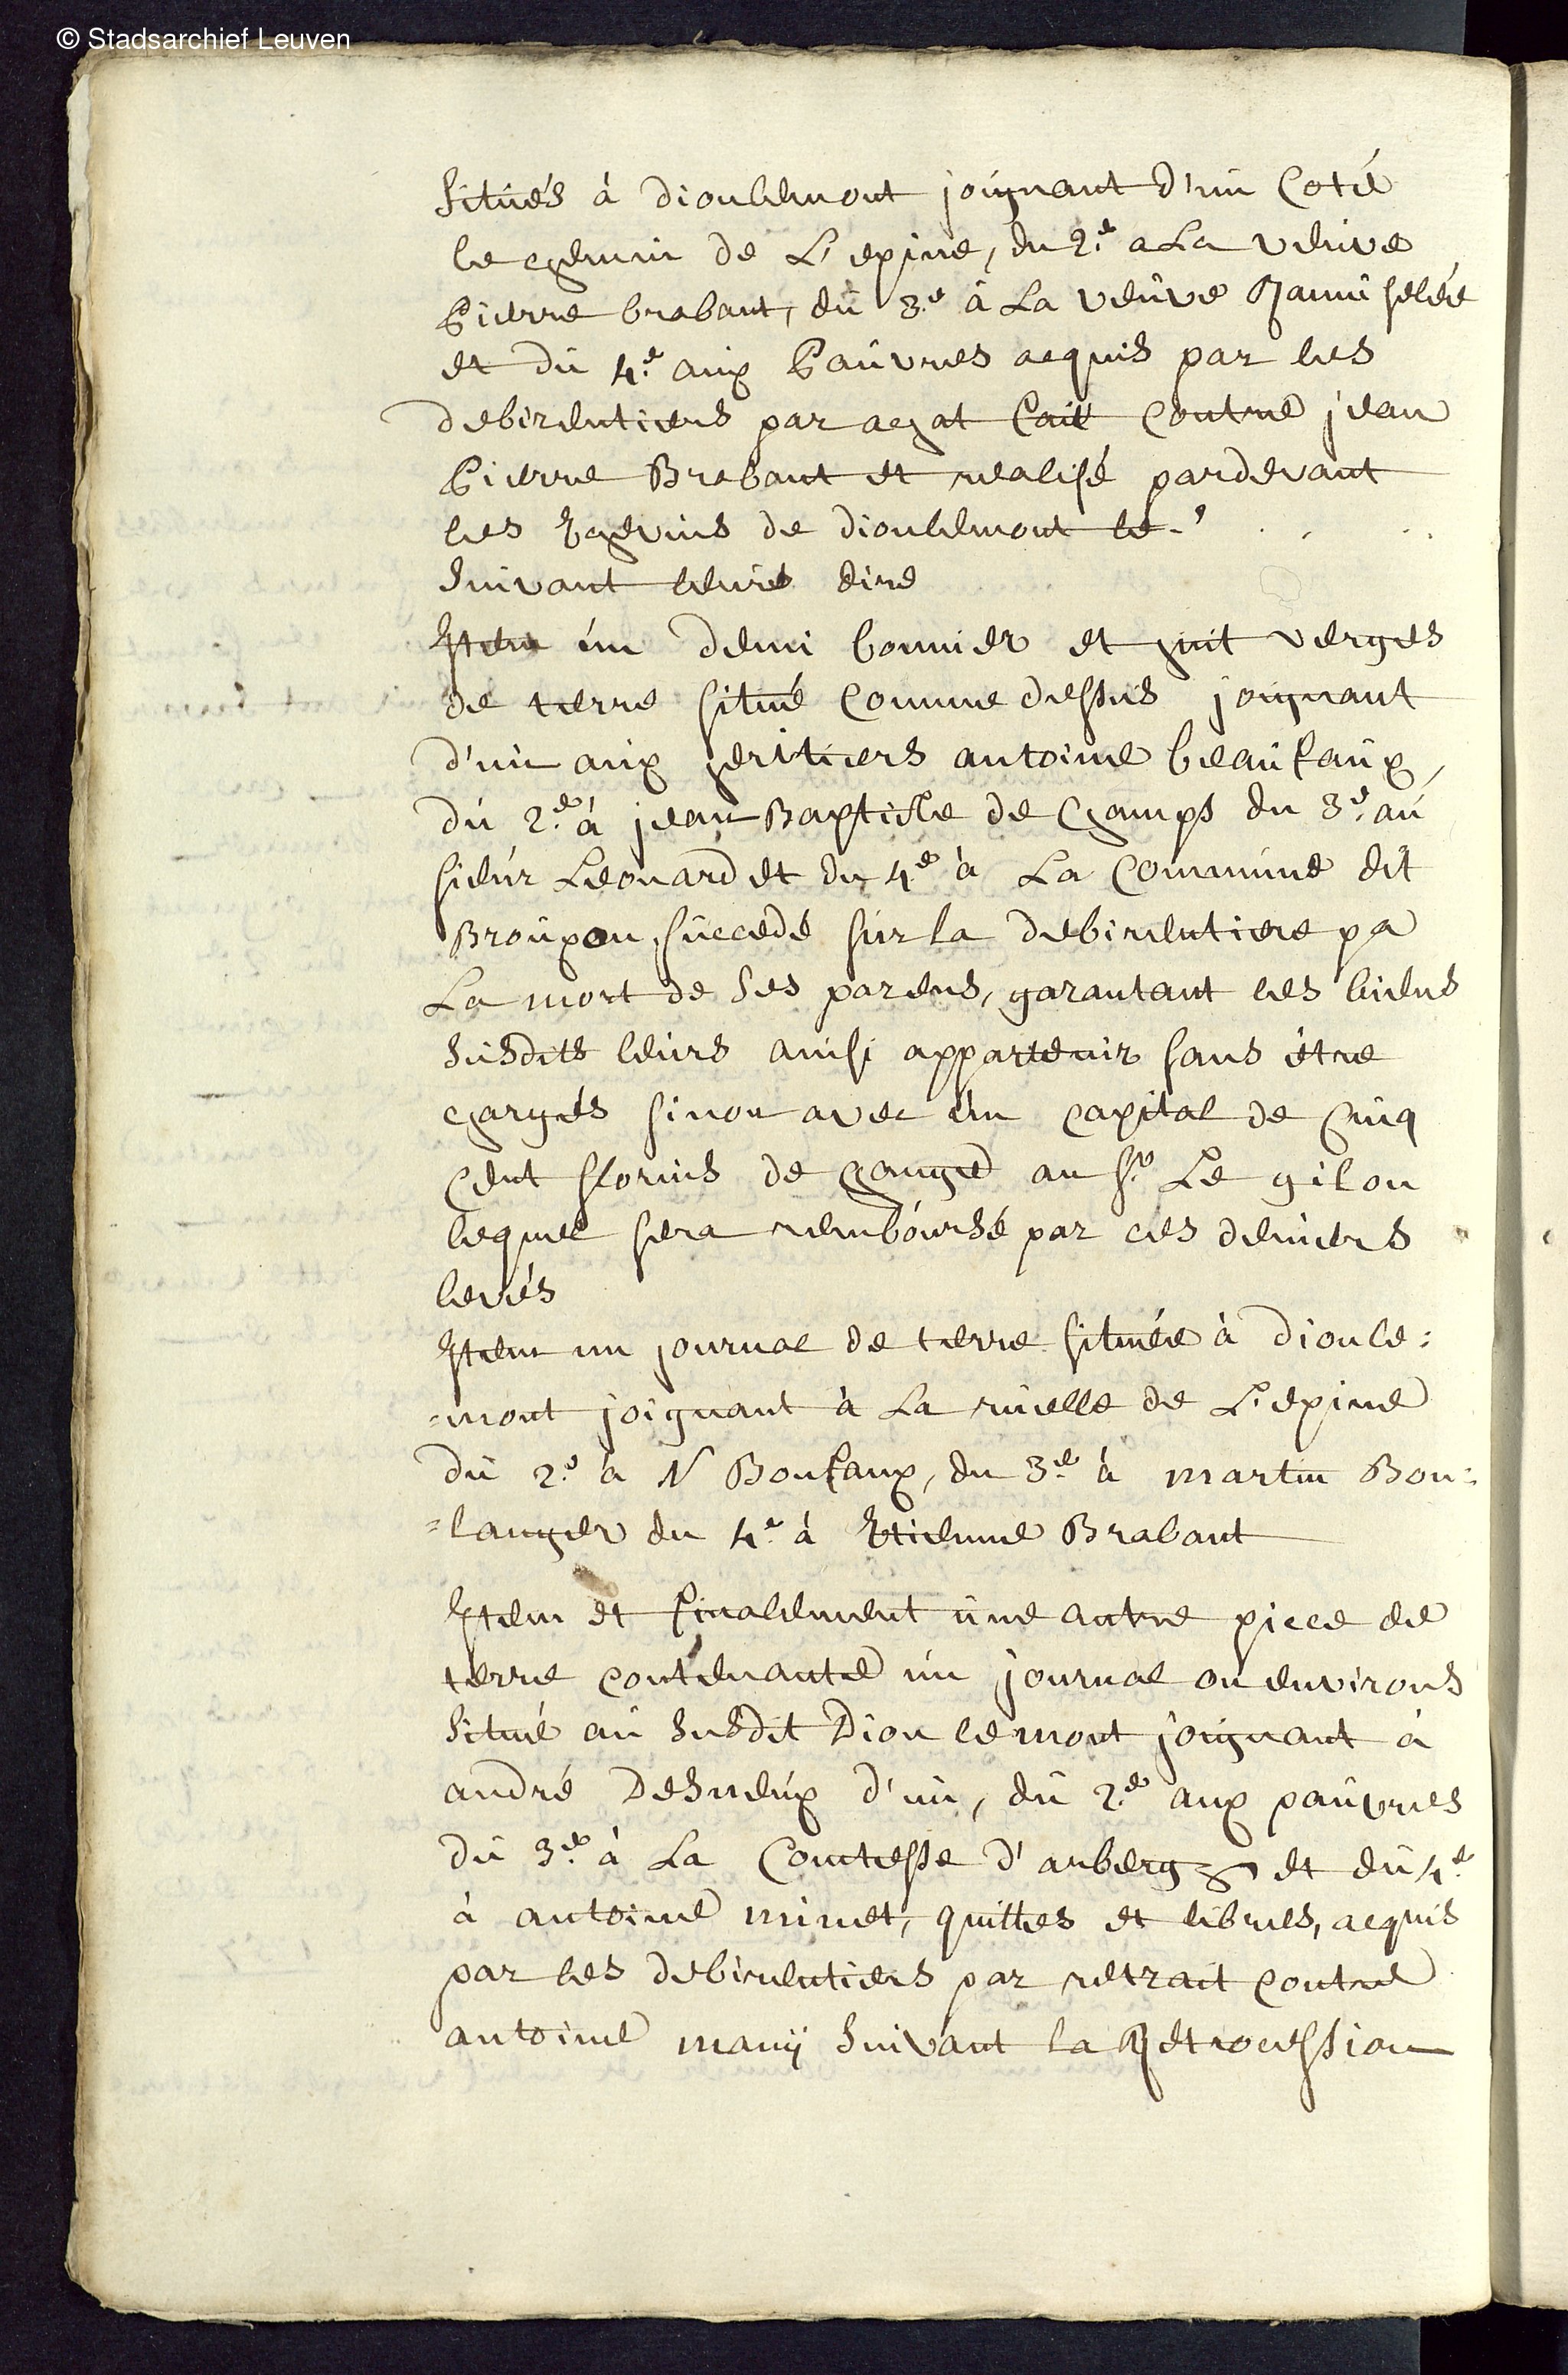 © Stadsarchief Leuven
situés à dioulemont joignant d'un coté
le chemin de L'epine, du 2.e a La veuve
Pierre brabant, du 3.e à La veuve
et du 4.e aux Pauvres acquis par les
debirentiers par achat fait contre jean
Pierre Brabant et realisé pardevant
les Echevins de dioulemont le
suivant leurs dire
Item un demi bonnier et huit verges
de terre situé comme dessus joignant
d'un aux heritiers antoine beaufaux,
du 2.e à jean Baptiste de Champs du 3.e au
sieur Leonard et du 4.e à La Commune dit
Brouxou, succedé sur la debirentiere pa
La mort de ses parens, garantant les biens
susdits leurs ainsi appartenir sans être
chargés sinon avec un capital de Cinq
Cent florins de change au Sr. Le gilou
lequel sera remboursé par ces deniers
levés
Item un journal de terre située à dioule:
=mont joignant à La ruelle de L'epine
du 2.e à N Boufaux, du 3.e à martin Bou:
=langer du 4.e à Etienne Brabant
Item et finalement une autre piece de
terre contenante un journal ou environs
situé au susdit Dion le mont joignant à
andré Desneux d'un, du 2.e aux pauvres
du 3.e à La Comtesse d'arberg et du 4.e
à antoine minet, quittes et libres, acquis
par les debirentiers par retrait contre
antoine manij suivant la Retrocession